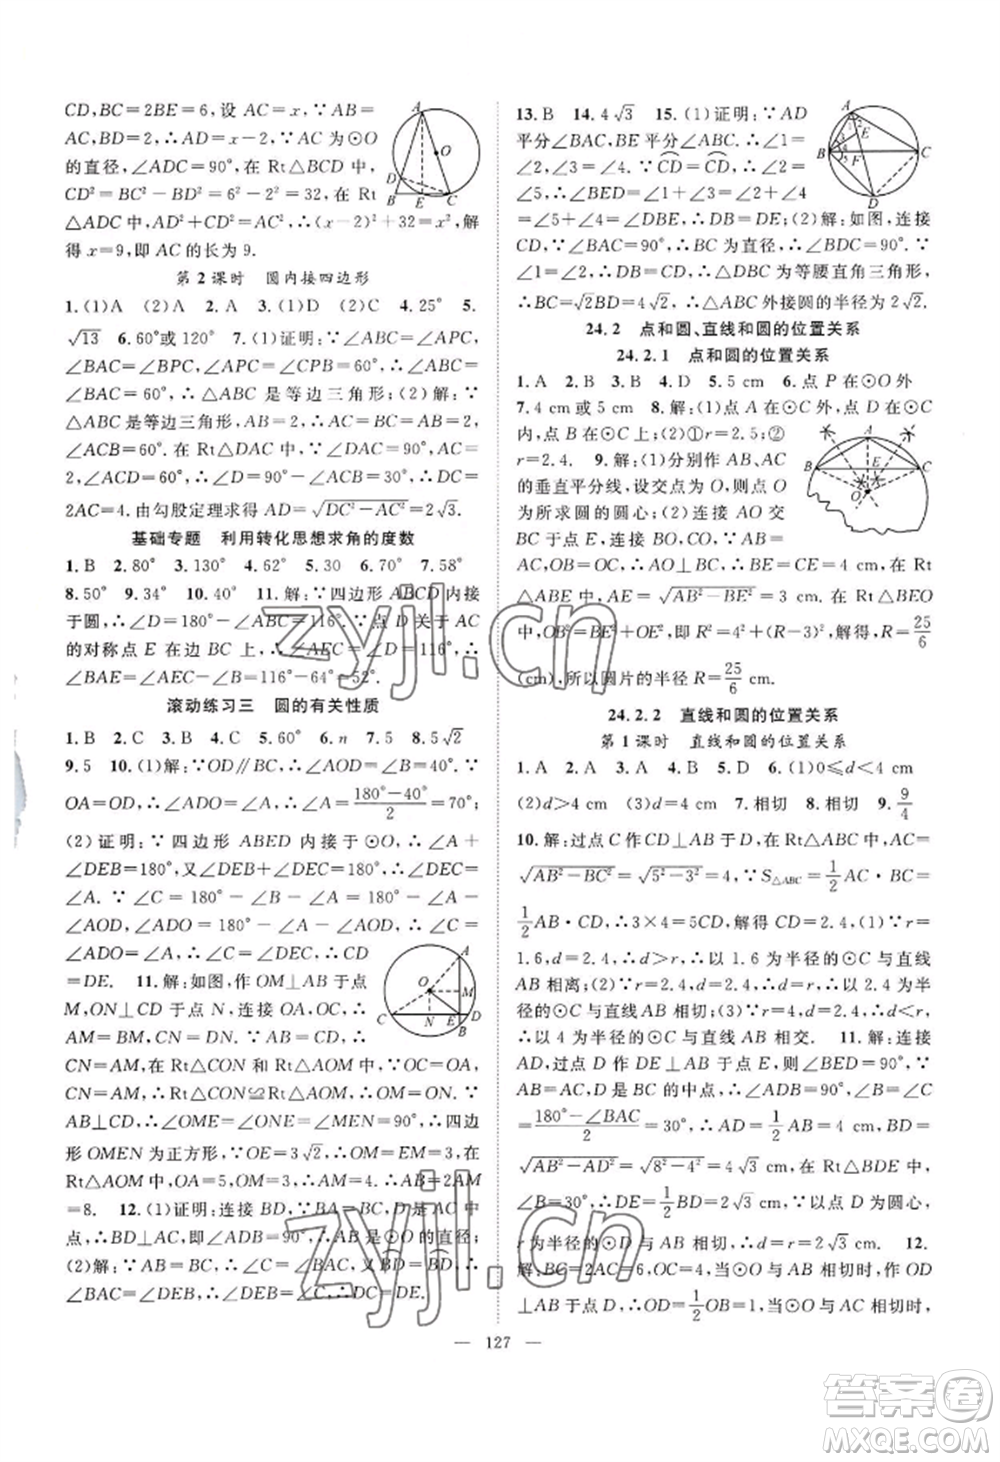 CD,BC=2BE=6,设 AC=x,∵AB=
AC,BD=2,∴AD=x-2,∵AC 为⊙O
的直径,∴∠ADC=90°,在 Rt△BCD 中,
CD²=BC²-BD²=6²-2²=32,在 Rt
△ADC 中,AD²+CD²=AC²,∴(x-2)²+32=x²,解
得 x=9,即 AC 的长为 9.
第 2 课时 圆内接四边形
1.(1)A (2)A 2.A 3.A 4.25° 5.
√13 6.60°或 120° 7.(1)证明:∵∠ABC=∠APC,
∠BAC=∠BPC,∠APC=∠CPB=60°,∴∠ABC=
∠BAC=60°,∴△ABC 是等边三角形;(2)解:∵
△ABC 是等边三角形,∴AC=BC=AB=2√3,∠ACB
=60°.在 Rt△PAC 中,∠PAC=90°,∠APC=60°,AC
=2√3,∴AP=2.在 Rt△DAC 中,∠DAC=90°,AC=
2√3,∠ACD=60°,∴∠D=90°-∠ACD=30°,∴DC=
2AC=4√3.由勾股定理求得 AD=√DC²-AC²=6
基础专题 利用转化思想求角的度数
1.B 2.80° 3.130° 4.62° 5.30 6.70° 7.58°
8.50° 9.34° 10.219° 11.解:∵四边形 ABCD 内接
于圆,∴∠D=180°-∠ABC=116°.∵点 D 关于 AC
的对称点 E 在边 BC 上,∴∠AEC=∠D=116°,∴
∠BAE=∠AEC-∠B=116°-64°=52°.
滚动练习三 圆的有关性质
1.B 2.C 3.A 4.B 5.D 6.π 7.5 8.5√2
9.5 10.(1)解:∵OD∥BC,∴∠AOD=∠B=40°,∵
OA=OD,∴∠ADO=∠A,∴∠A=(180°-40°)/2=70°;
(2)证明:∵四边形 ABED 内接于⊙O,∴∠A+
∠DEB=180°,又∠DEB+∠DEC=180°,∴∠DEC=
∠A.∵∠C=180°-∠A-∠B,∠ADO=180°-∠A-
∠AOD,∠ADO=∠A,∠B=∠AOD.∴∠C=
∠ADO=∠A,∴∠C=∠DEC,∴CD
=DE. 11.解:如图,作 OM⊥AB 于点
M,ON⊥CD 于点 N,连接 OA,OC,∴
AM=BM,CN=DN,∵AB=CD,∴
CN=AM,在 Rt△CON 中,∵OC=OA,
CN=AM,∴Rt△CON≌Rt△AOM,∴ON=OM.∵
AB⊥CD,∴∠OME=∠ONE=∠MEN=90°,∴四边
形 OMEN 为正方形.∵OE=3√2,∴OM=EM=3,在
Rt△AOM 中,OA=5,OM=3,∴AM=4,∴AB=2AM=
8. 12.(1)证明:连接 BD,∵BA=BC,BD⊥AC,∴
点 D 为 AC 中点;
(2)解:∵AB=BC,∴∠BAC=∠C,又∵
∠BAC=∠DEB,∴∠DEB=∠C,∴DC=DE.
13.B 14.4√3 15.(1)证明:∵AD
平分∠BAC,BE 平分∠ABC.∴∠1=
∠2,∠3=∠4.∵CD=CD,∴∠2=
∠5,∵∠BED=∠1+∠3,∠DBE
=∠5+∠4,∴∠BED=∠DBE,∴DB=DE;(2)解:如图,连接
CD,∵∠BAC=90°,∴BC 为直径,∴∠BDC=90°.∵
∠1=∠2,∴DB=DC,∴△DBC 为等腰直角三角形,
∴BC=√2BD=4√2,∴△ABC 外接圆的半径为 2√2.
24.2 点和圆、直线和圆的位置关系
24.2.1 点和圆的位置关系
1.A 2.B 3.B 4.D 5.5 cm 6.点 P 在⊙O 外
7.4 cm 或 5 cm 8.解:(1)点 A 在⊙C 外,点 D 在⊙C
内,点 B 在⊙C 上;(2)①r=2.5;②
r=2.4. 9.解:(1)分别作 AB、AC
的垂直平分线,设交点为 O,则点 O
为所求圆的圆心;(2)连接 AO 交
BC 于点 E,连接 BO、CO,∵AB=
AC,BC=6,∴AE⊥BC,BE=3.在 Rt
△ABE 中,AE=√AB²-BE²=4.在 Rt△BEO
中,OB²=BE²+OE²,即 R²=4²+(R-3)²,解得,R=25/6
(cm),所以圆片的半径 R=25/6 cm.
24.2.2 直线和圆的位置关系
第 1 课时 直线和圆的位置关系
1.A 2.A 3.C 4.A 5.2 6.(1)0≤d<4 cm
(2)d>4 cm (3)d=4 cm 7.相切 8.相切 9.9/4
10.解:过点 C 作 CD⊥AB 于 D,在 Rt△ABC 中,AC=
√AB²-BC²=√5²-3²=4.∵S△ABC=1/2AC·BC=
1/2AB·CD,∴3×4=5CD,解得 CD=2.4,(1)∵r=
1.6,d=2.4,∴d>r,∴以 1.6 为半径的⊙C 与直线
AB 相离;(2)∵d=2.4,r=2.4,∴d=r,∴以 2.4 为半
径的⊙C 与直线 AB 相切;(3)∵r=4,d=2.4,∴d<r,
∴以 4 为半径的⊙C 与直线 AB 相交. 11.解:连接
AD,过点 D 作 DE⊥AB 于点 E,则∠BED=90°,∵
AB=AC,D 是 BC 的中点,∴∠ADB=90°,∠B=
(180°-∠BAC)/2=30°,∴AD=1/2AB=4,BD=
√AB²-AD²=√8²-4²=4√3.∵在 Rt△BDE 中,
∠B=30°,∴DE=1/2BD=2√3,∵以点 D 为圆心,
r 为半径的⊙D 与 AB 相切,∴d=r=2√3. 12.
解:BC=2AC=6,∴AC=3.∵BC=6,作 OD
⊥AC 于点 D,∴OD=1/2OB=1,当⊙O 与 AC 相切时,
127
答案圈
MXQE.COM
zyjl.cn
zyjl.cn